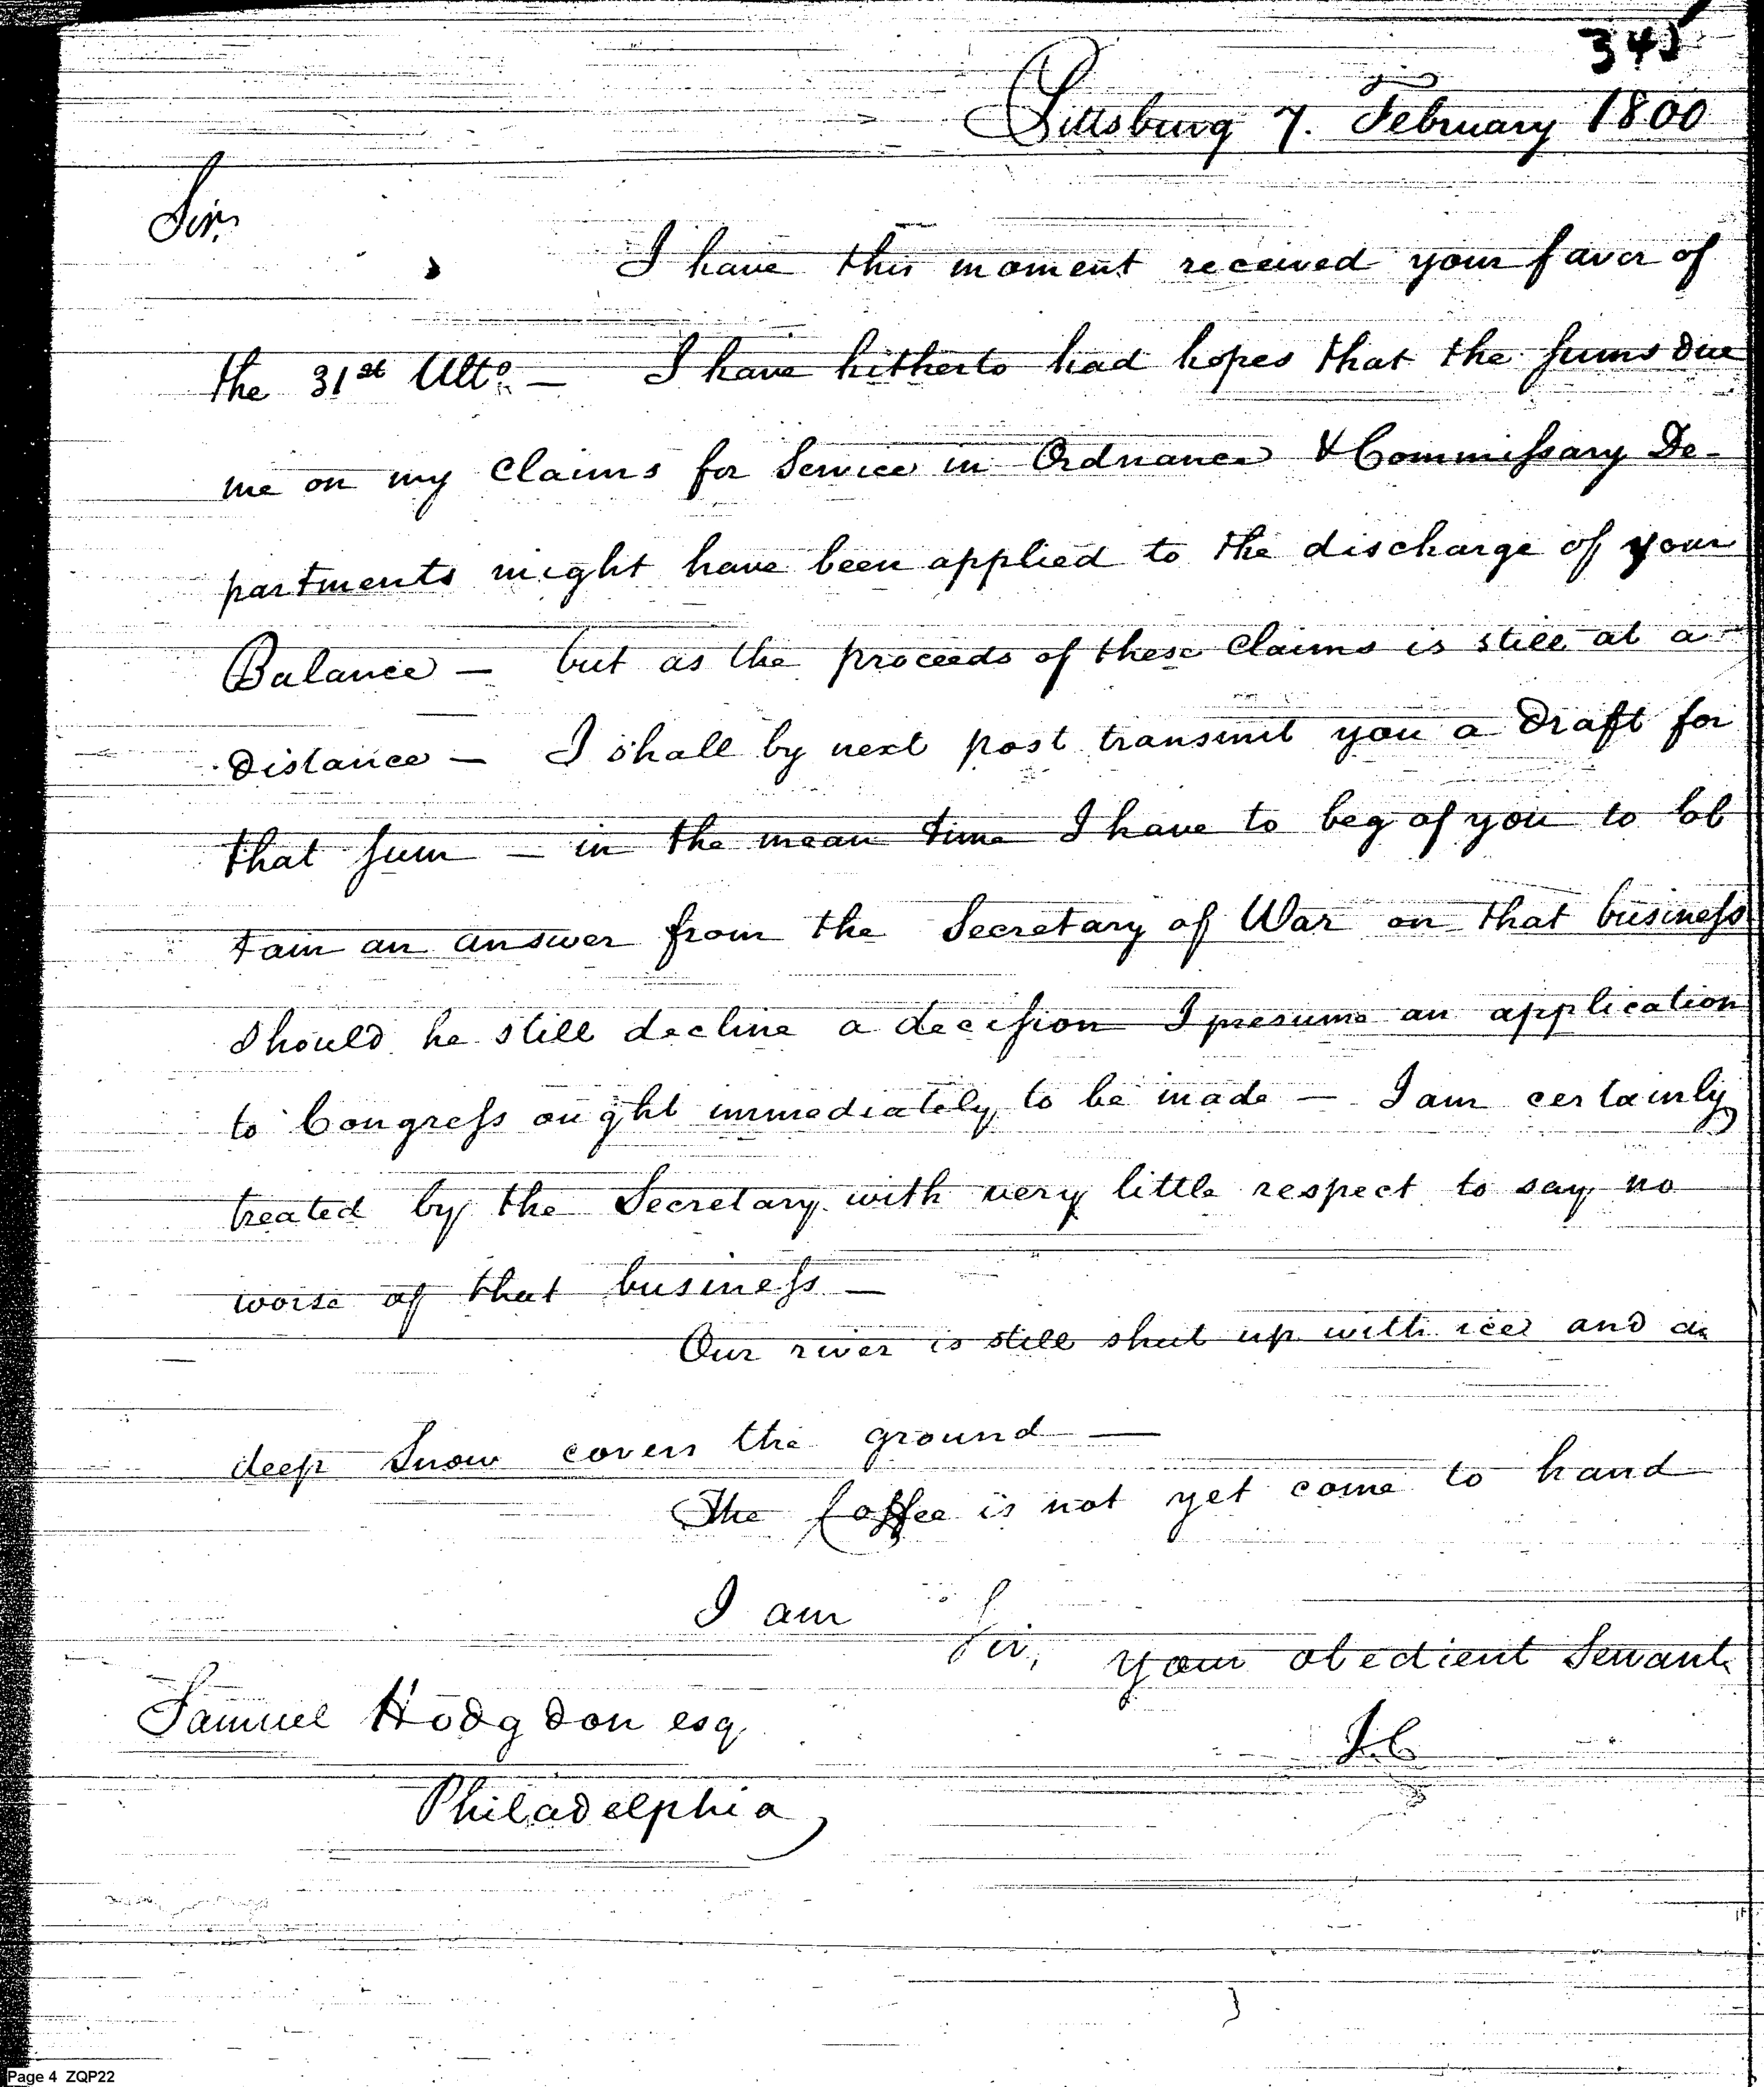 Pittsburg 7. February 1800
Sir,
I have this moment received your favor of
the 31st Ulto. — I have hitherto had hopes that the sums due
me on my claims for Service in Ordnance & Commissary De-
partments might have been applied to the discharge of your
Balance — but as the proceeds of these Claims is still at a
distance — I shall by next post transmit you a Draft for
that sum — in the mean time I have to beg of you to ob
tain an answer from the Secretary of War on that business
should he still decline a decision I presume an application
to Congress ought immediately to be made — I am certainly
treated by the Secretary with very little respect to say no
worse of that business —
Our river is still shut up with ice and a
deep Snow covers the ground —
The Coffee is not yet come to hand
I am
Sir, your obedient Servant
Samuel Hodgdon esq.
I. C
Philadelphia,
Page 4 ZQP22